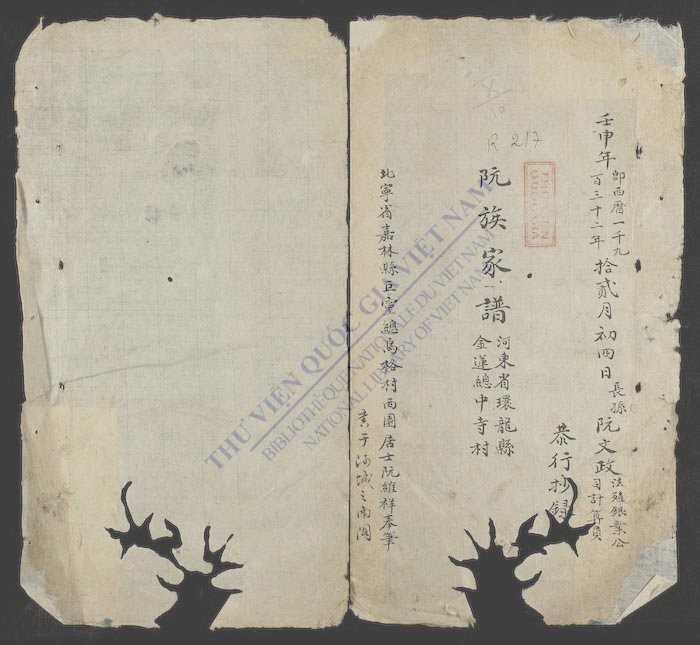 壬申年即西曆一千九百三十二年拾貳月初四日長孫阮文政法殖銀業公司計算員
恭行抄錄
X/10
R 217
阮族家譜河東省環龍縣金蓮總中寺村
北寧省嘉林縣巨靈總烏格村西園居士阮維祥奉筆
書于河城之南閣
THƯ VIỆN QUỐC GIA VIỆT NAM
BIBLIOTHÈQUE NATIONALE DU VIETNAM
NATIONAL LIBRARY OF VIETNAM